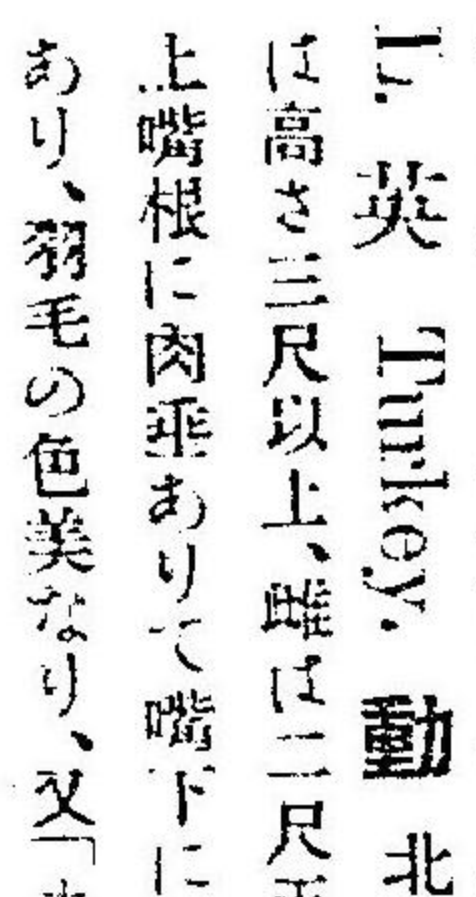 L. 英 Turkey. 動 北
は高さ三尺以上、雌は二尺
上嘴根に肉垂ありて嘴下に
あり、羽毛の色美なり、又「